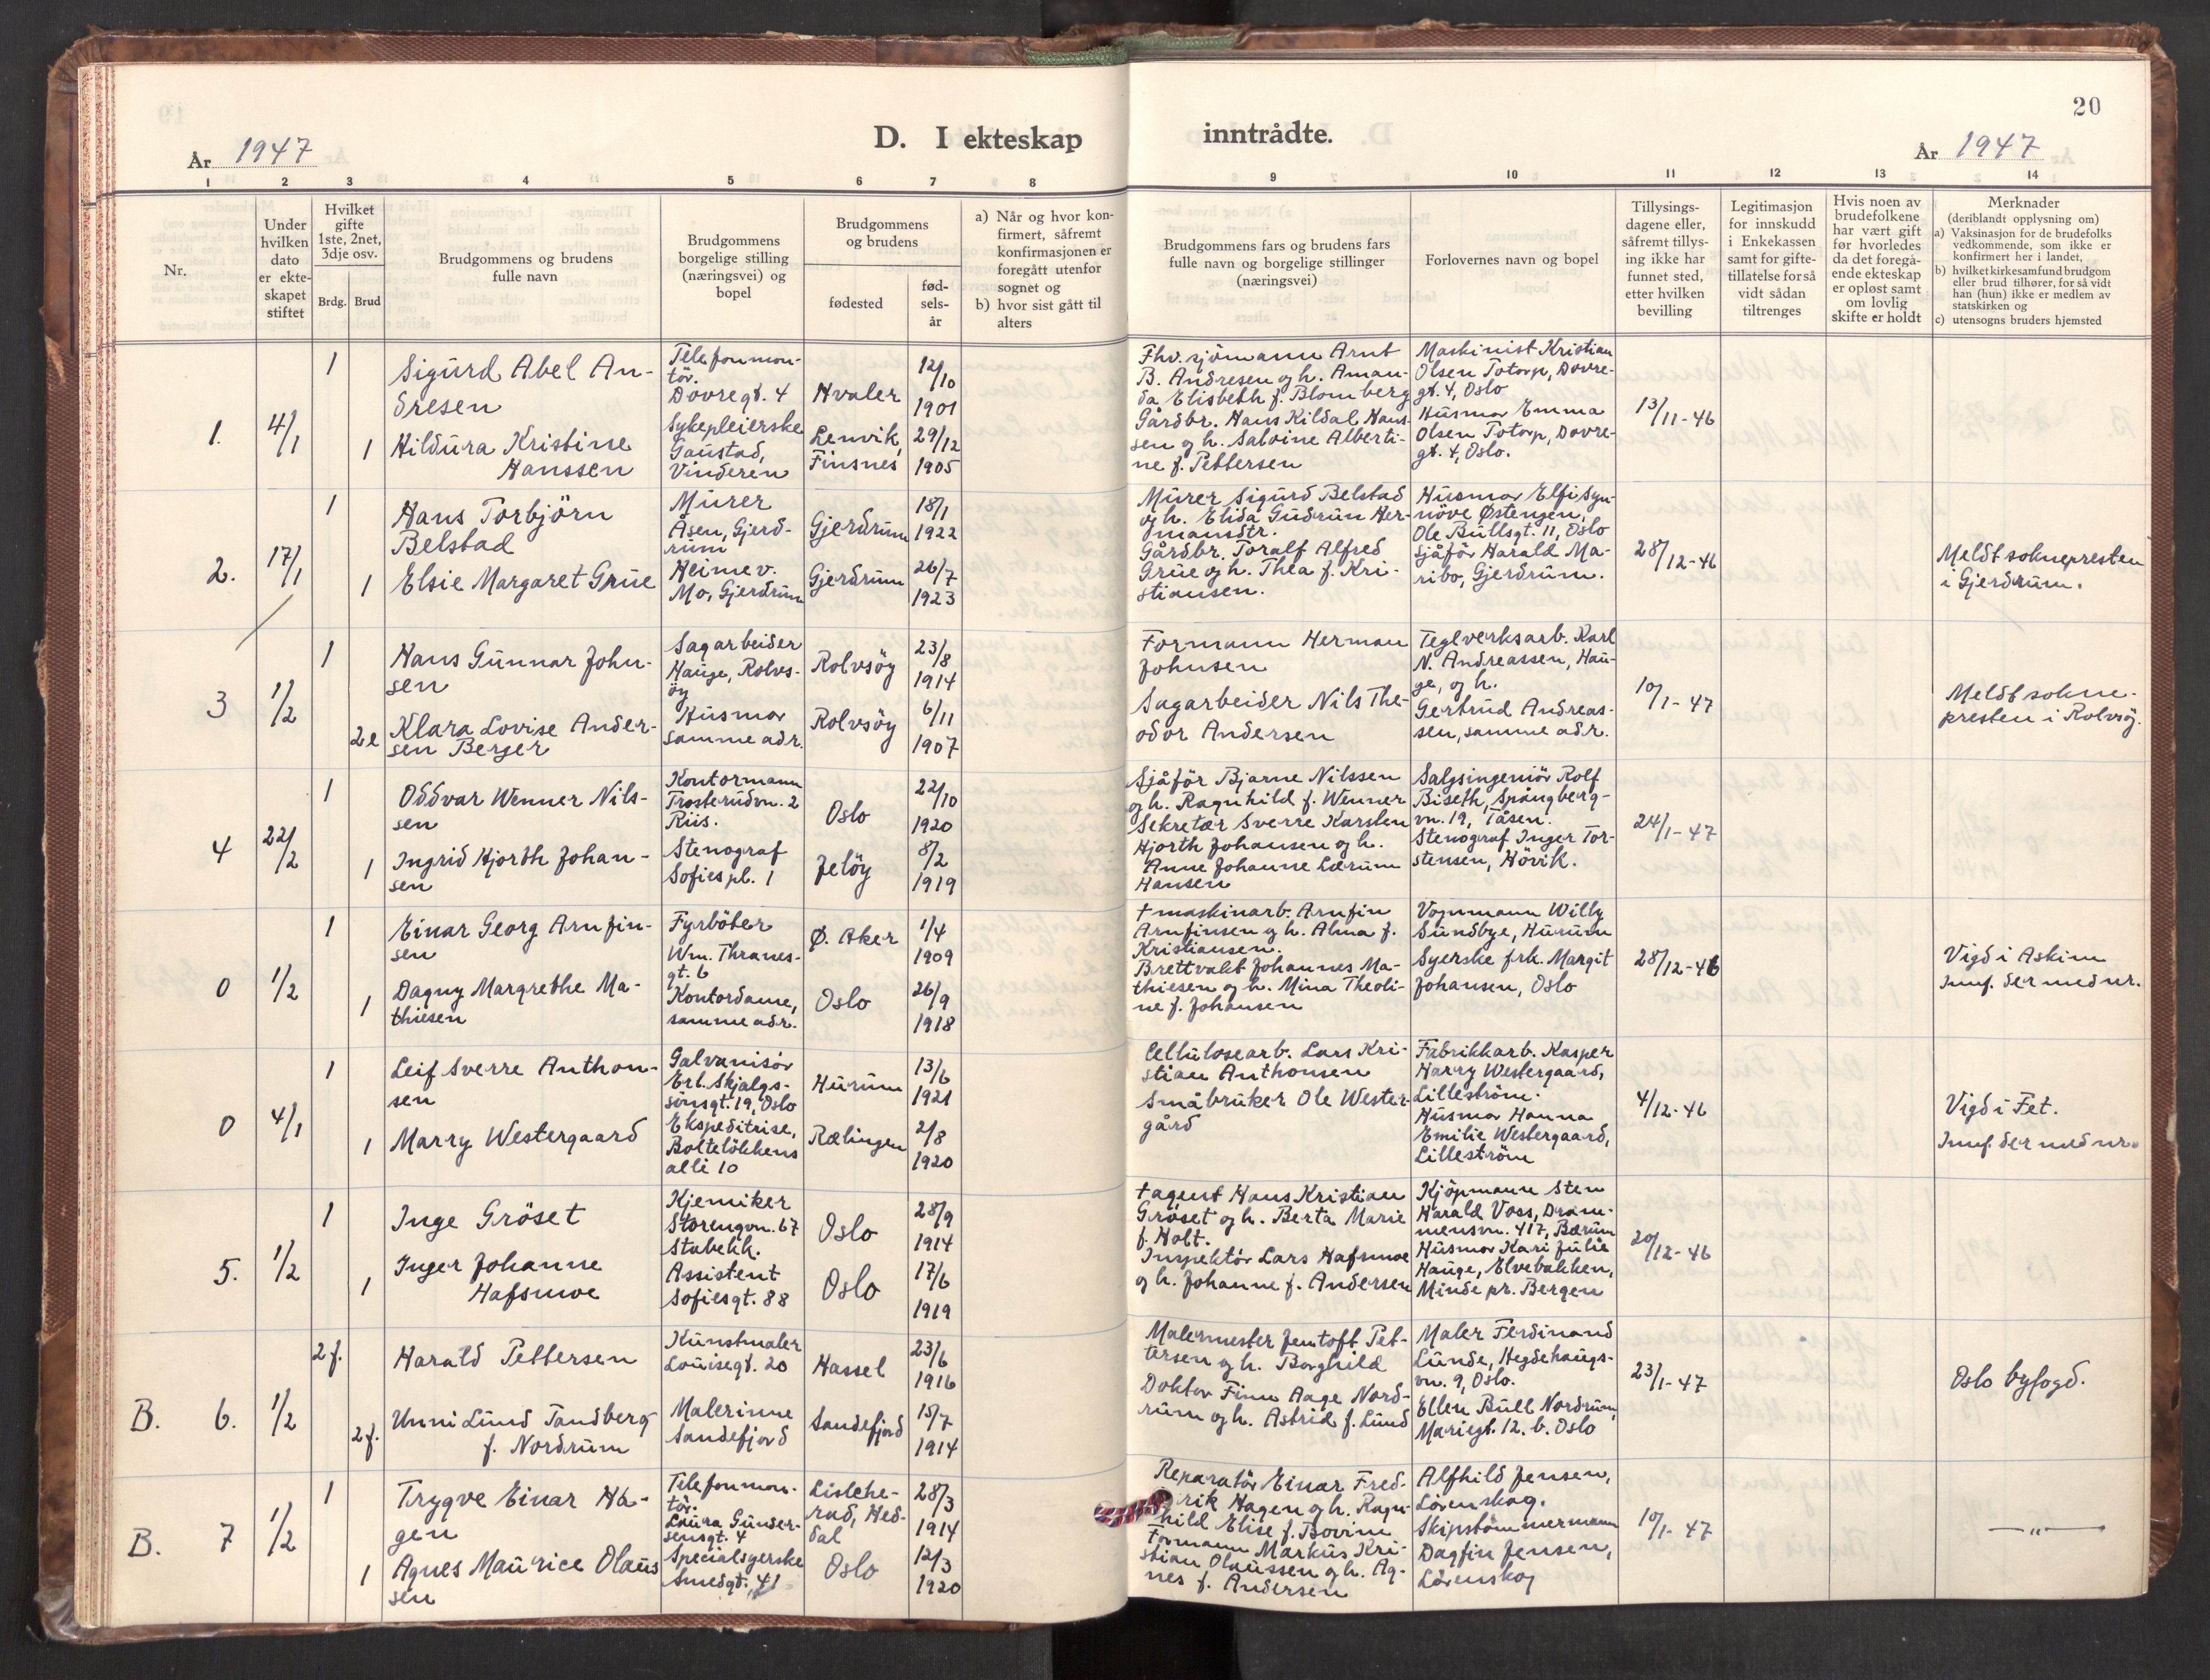 20
D. I ekteskap inntrådte.
År 1947
År 1947
1 2 3 4 5 6 7 8 9 10 11 12 13 14
Nr.
Under
hvilken
dato
er ekte-
skapet
stiftet
Hvilket
gifte
1ste, 2net,
3dje osv.
Brdg. Brud
Brudgommens og brudens
fulle navn
Brudgommens
borgelige stilling
(næringsvei) og
bopel
Brudgommens
og brudens
fødested
fød-
sels-
år
a) Når og hvor kon-
firmert, såfremt
konfirmasjonen er
foregått utenfor
sognet og
b) hvor sist gått til
alters
Brudgommens fars og brudens fars
fulle navn og borgelige stillinger
(næringsvei)
Forlovernes navn og bopel
Tillysings-
dagene eller,
såfremt tillys-
ing ikke har
funnet sted,
etter hvilken
bevilling
Legitimasjon
for innskudd
i Enkekassen
samt for gifte-
tillatelse forså
vidt sådan
tiltrenges
Hvis noen av
brudefolkene
har vært gift
før hvorledes
da det foregå-
ende ekteskap
er opløst samt
om lovlig
skifte er holdt
Merknader
(deriblandt opplysning om)
a) Vaksinasjon for de brudefolks
vedkommende, som ikke er
konfirmert her i landet,
b) hvilket kirkesamfund brudgom
eller brud tilhører, for så vidt
han (hun) ikke er medlem av
statskirken og
c) utensogns bruders hjemsted
1.
4/1
1
1
Sigurd Abel An-
dresen
Hildura Kristine
Hanssen
Telefonmon-
tör.
Dovregt. 4
Sykepleierske
Gaustad,
Vinderen
Hvaler
Lenvik,
Finsnes
12/10
1901
29/12
1905
Fhv. sjömann Arnt
B. Andresen og h. Aman-
da Elisbeth f. Blomberg
Gårdbr. Hans Kildal Hans-
sen og h. Salvine Alberti-
ne f. Pettersen
Maskinist Kristian
Olsen Totorp, Dovre-
gt. 4, Oslo
Husmor Emma
Olsen Totorp, Dovre-
gt. 4, Oslo.
13/11-46
2.
17/1
1
1
Hans Torbjörn
Belstad
Elsie Margaret Grue
Murer
Åsen, Gjerd-
rum
Heimev.
Mo, Gjerdrum
Gjerdrum
Gjerdrum
18/1
1922
26/7
1923
Murer Sigurd Belstad
og h. Elida Gudrun Her-
mansdtr.
Gårdbr. Toralf Alfred
Grue og h. Thea f. Kri-
stiansen.
Husmor Elfi Syn-
növe Østengen,
Ole Bullsgt. 11, Oslo
Sjåför Harald Ma-
ribo, Gjerdrum.
28/12-46
Meldt sokneprestem
i Gjerdrum.
3
1/2
1
2e
Hans Gunnar John-
sen
Klara Lovise Ander-
sen Berger
Sagarbeider
Hauge, Rolvs-
öy
Husmor
samme adr.
Rolvsöy
Rolvsöy
23/8
1914
6/11
1907
Formann Herman
Johnsen
Sagarbeider Nils The-
odor Andersen
Teglverksarb. Karl
N. Andreassen, Hau-
ge, og h.
Gertrud Andreas-
sen, samme adr.
10/1-47
Meldt sokne-
presten i Rolvsöy.
4
22/2
1
1
Oddvar Wenner Nils-
sen
Ingrid Hjorth Johan-
sen
Kontormann
Trosterudvn. 2
Riis.
Stenograf
Sofies pl. 1
Oslo
Jelöy
22/10
1920
8/2
1919
Sjåför Bjarne Nilssen
og h. Ragnhild f. Wenner
Sekretær Sverre Karsten
Hjorth Johansen og h.
Anne Johanne Lærum
Hansen
Salgsingeniör Rolf
Biseth, Spångberg-
vn. 19, Tåsen.
Stenograf Inger Tor-
stensen, Hövik.
24/1-47
0
1/2
1
1
Einar Georg Arnfin-
sen
Dagny Margrethe Ma-
thiesen
Fyrböter
Wm. Thranes-
gt. 6
Kontordame,
samme adr.
Ø. Aker
Oslo
1/4
1909
26/9
1918
+ maskinarb. Arnfin
Arnfinsen og h. Alma f.
Kristiansen.
Brettvakt Johannes Ma-
thiesen og h. Mina Theoli-
ne f. Johansen
Vognmann Willy
Sundbye, Hurum
Syerske frk. Margit
Johansen, Oslo
28/12-46
Vigd i Askim
Innf. der med nr.
0
4/1
1
1
Leif Sverre Anthon-
sen
Marry Westergaard
Galvanisör
Erl. Skjalgs-
sönsgt. 19, Oslo
Ekspeditrise,
Bolteløkkens
alle 10
Hurum
Rælingen
13/6
1921
2/8
1920
Cellulosearb. Lars Kri-
stian Anthonsen
Småbruker Ole Wester-
gård
Fabrikkarb. Kasper
Harry Westergaard,
Lilleström.
Husmor Hanna
Emilie Westergaard,
Lilleström
4/12-46
Vigd i Fet.
Innf. der med nr.
5.
1/2
1
1
Inge Gröset
Inger Johanne
Hafsmoe
Kjemiker
Storengvn. 67
Stabekk.
Assistent
Sofiesgt. 88
Oslo
Oslo
28/9
1914
17/6
1919
+ agent Hans Kristian
Gröset og h. Berta Marie
f. Holt.
Inspektör Lars Hafsmoe
og h. Johanne f. Andersen
Kjöpmann Sten
Harald Voss, Dram-
mensvn. 417, Bærum
Husmor Kari Julie
Hauge, Elvebakken,
Minde pr. Bergen
20/12-46
B. 6.
1/2
2 f.
2 f.
Harald Pettersen
Unni Lund Tandberg
f. Nordrum
Kunstmaler
Louisegt. 20
Malerinne
Sandefjord
Hassel
Sandefjord
23/6
1916
15/7
1914
Malermester Jentoft Pet-
tersen og h. Borghild
Doktor Finn Aage Nord-
rum og h. Astrid f. Lund
Maler Ferdinand
Lunde, Hegdehaugs-
vn. 9, Oslo.
Ellen Bull Nordrum,
Mariegt. 12. b. Oslo
23/1-47
Oslo byfogd.
B. 7
1/2
1
1
Trygve Einar Ha-
gen
Agnes Maurice Olaus
sen
Telefonmon-
tör.
Laura Gunder-
sensgt. 4
Specialsyerske
Smedgt. 41
Lislehe-
rad, Hed-
dal
Oslo
28/3
1914
12/3
1920
Reparatör Einar Fred-
rik Hagen og h. Ragn-
hild Elise f. Bovim
Formann Markus Kri-
stian Olaussen og h. Ag-
nes f. Andersen
Alfhild Jensen,
Lörenskog.
Skipstömmermann
Dagfin Jensen,
Lörenskog
10/1-47
—"—